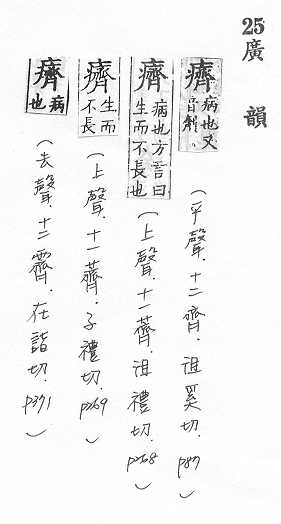 25廣韻
癠 病也又音 (平聲.十二齊.徂奚切.p87)
癠 病也方言曰生而不長也 (上聲.十一薺.徂禮切.p268)
癠 生而不長 (上聲.十一薺.子禮切.p269)
癠 病也 (去聲.十二霽.在詣切.p371)